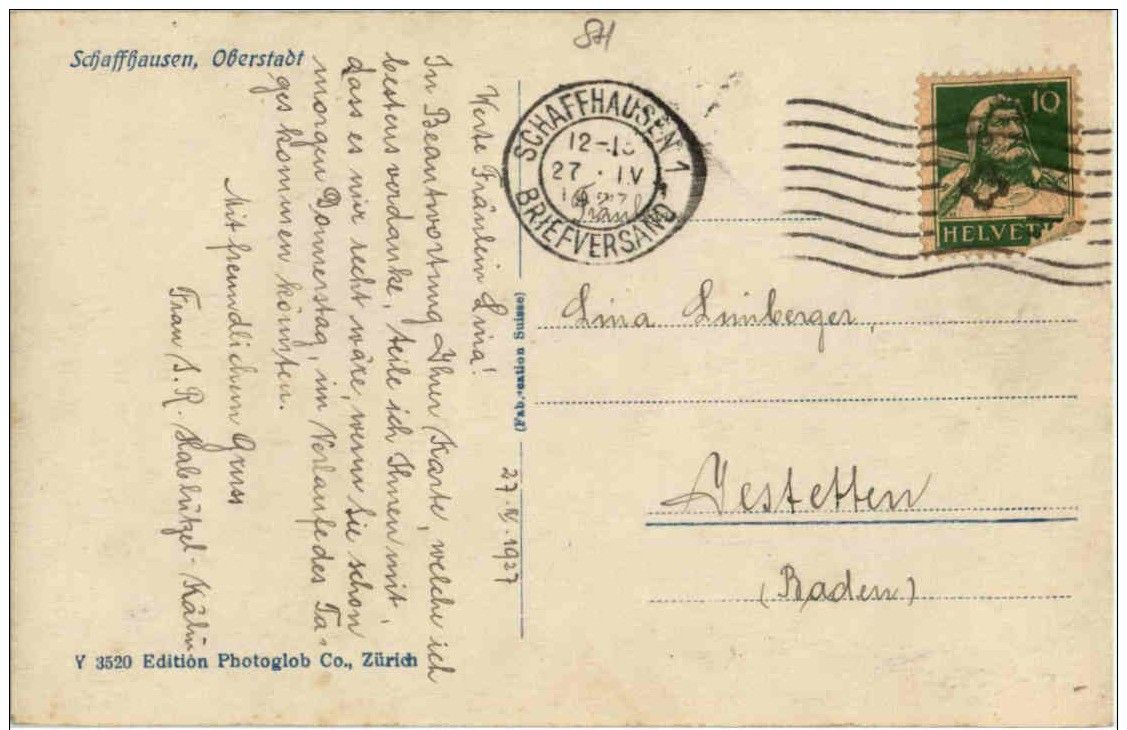 SH
Schaffhausen, Oberstadt
Werte Fräulein Lina!
In Beantwortung Ihrer Karte, welche ich
bestens verdanke, teile ich Ihnen mit,
dass es mir recht wäre, wenn Sie schon
morgen Donnerstag, im Verlaufe des Ta-
ges kommen könnten.
Mit freundlichem Gruss
Frau S. R. Habluzel-Kälin
27. IV. 1927
Y 3520 Edition Photoglob Co., Zürich
(Fabrication Suisse)
SCHAFFHAUSEN 1
12-
27. IV
1927
BRIEFVERSAND
10
HELVET
Fräul.
Lina Limberger,
Jestetten
(Baden)